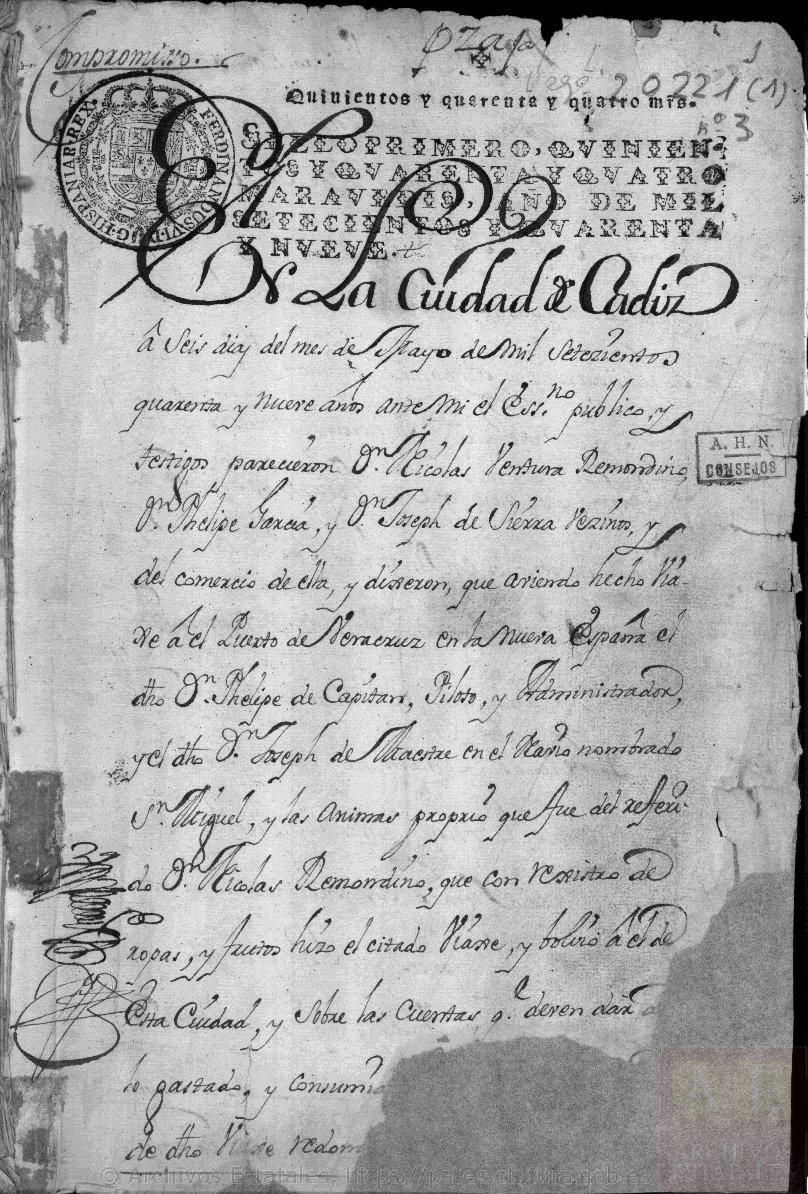 Compromisso.
20221 (1)
nº 3
Quinientos y quarenta y quatro mrs.
SELLO PRIMERO, QVINIEN-
TOS Y QVARENTA Y QVATRO
MARAVEDIS, AÑO DE MIL
SETECIENTOS Y QVARENTA
Y NVEVE.
FERDINANDUS VI D G HISPANIAR REX
En La Ciudad de Cadiz
â Seis dias del mes de Mayo de Mil Setezientos
quarenta y nueve años ante Mi el Ess.no publico, y
testigos parecieron Dn. Nicolas Ventura Remondino,
Dn. Phelipe Garcia, y Dn. Joseph de Sierra vezinos, y
del comercio de ella, y dixeron, que aviendo hecho Via-
xe â el Puerto de Veracruz en la Nueva España el
dho Dn. Phelipe de Capitan, Piloto, y Administrador,
y el dho Dn. Joseph de Maestre en el Navio nombrado
Sn. Miguel, y las Animas proprio que fue del referi-
do Dn. Nicolas Remondino, que con rexistro de
ropas, y frutos hizo el citado Viaxe, y bolvio â el de
Esta Ciudad, y Sobre las Cuentas q.e deven dar
lo gastado, y consumi
de dho Viaxe redom
A. H. N.
CONSEJOS
© Archivos Estatales, https://pares.cultura.gob.